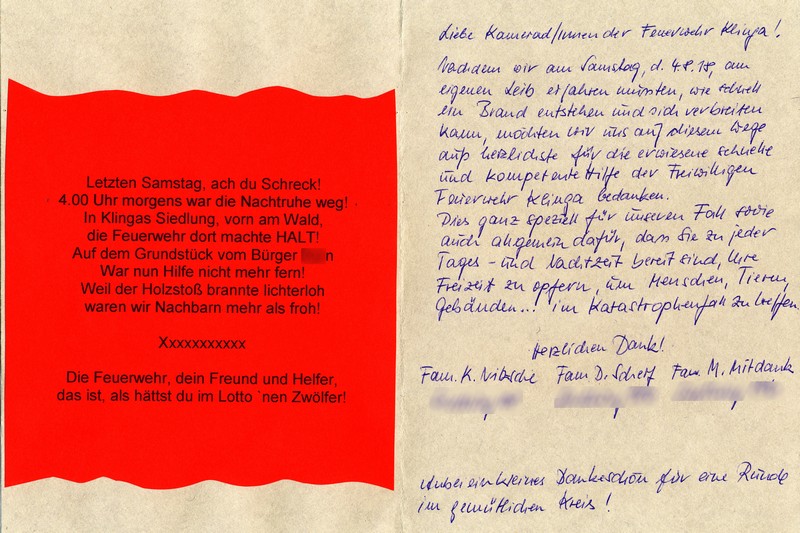 Letzten Samstag, ach du Schreck!
4.00 Uhr morgens war die Nachtruhe weg!
In Klingas Siedlung, vorn am Wald,
die Feuerwehr dort machte HALT!
Auf dem Grundstück vom Bürger n
War nun Hilfe nicht mehr fern!
Weil der Holzstoß brannte lichterloh
waren wir Nachbarn mehr als froh!
Xxxxxxxxxxx
Die Feuerwehr, dein Freund und Helfer,
das ist, als hättst du im Lotto `nen Zwölfer!
Liebe Kamerad/innen der Feuerwehr Klinga!
Nachdem wir am Samstag, d. 4.8.18, am
eigenen Leib erfahren mussten, wie schnell
ein Brand entstehen und sich verbreiten
kann, möchten wir uns auf diesem Wege
aufs herzlichste für die erwiesene schnelle
und kompetente Hilfe der Freiwilligen
Feuerwehr Klinga bedanken.
Dies ganz speziell für unseren Fall sowie
auch allgemein dafür, dass Sie zu jeder
Tages- und Nachtzeit bereit sind, Ihre
Freizeit zu opfern, um Menschen, Tieren,
Gebäuden... im Katastrophenfall zu helfen.
Herzlichen Dank!
Fam. K. Nitzsche Fam D. Scherf Fam. M. Mitdank
Anbei ein kleines Dankeschön für eine Runde
im gemütlichen Kreis!